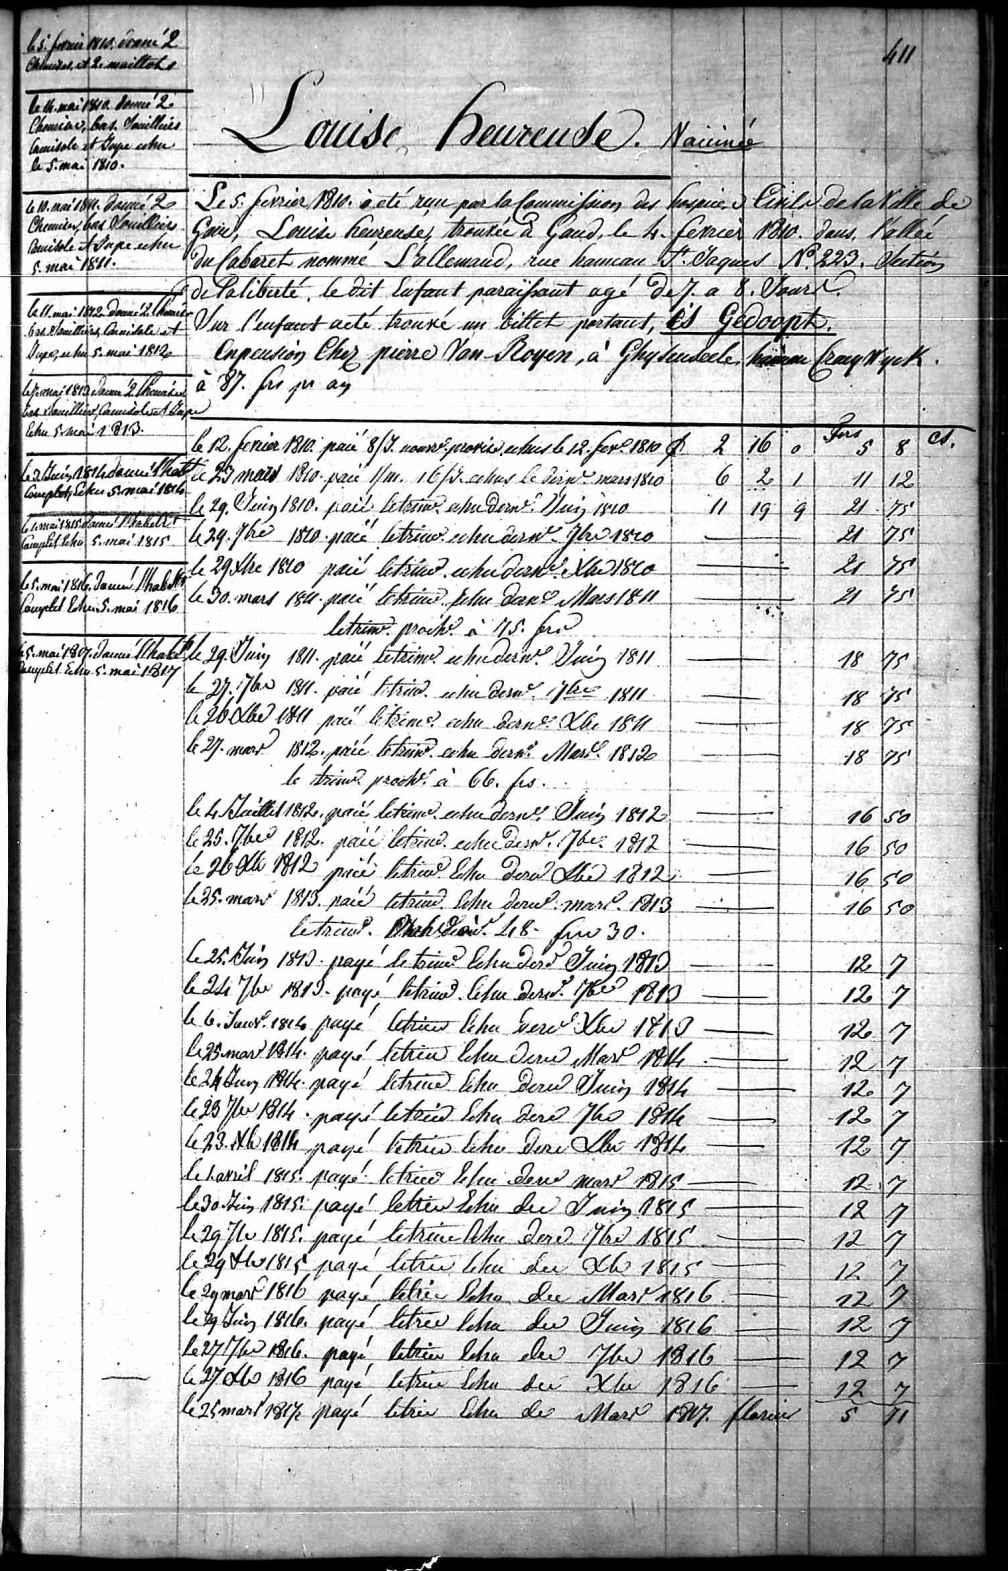 411
le 5. fevrier 1810. donné 2
Chemises, et 2. maillots
le 14. mai 1810. donné 2
Chemises, bas. Souilliers
Camisole et Jupe echu
le 5. mai 1810.
le 10. mai 1811. donné 2
Chemises, bas Souilliers
Camisole et Jupe echu
5. mai 1811.
le 11. mai 1812 donné 2 Chemises
bas. Souilliers, Camisole et
Jupe, echu 5. mai 1812
mai 1813 donné 2 Chemises
bas Souilliers, Camisole et Jupe
Echu 5 mai 1813.
le 2 Juin 1814 donné
Complet, Echu 5 mai 1814
mai 1815 donné
Complet Echu 5. mai 1815
le 5. mai 1816. Donné
Complet Echu 5. mai 1816
5. mai 1817. Donné
Complet Echu 5. mai 1817
Louise heureuse. Vaccinée
Le 5. fevrier 1810. a été reçu par la Commission des hospices Civils de la Ville de
Gand, Louise heureuse, trouvée à Gand, le 4. fevrier 1810. dans l'allée
du Cabaret nommé L'allemand, rue hameau St. Jaques No. 223. Section
de la liberté, le dit Enfant paraissant agé de 7. a 8. Jours.
Sur l'enfant a été trouvé un billet portant, is Gedoopt.
En pension Chez pierre Van-Royen, à Ghysenseele, hameau Craywyck.
à 87. frs pr an
frs ct.
le 12. fevrier 1810. paié 8/J. nourre. provre. echus le 12. fevr. 1810 £ 2 16 0 5 8
le 23 mars 1810. paié 1/m. 16/J. echus le dernr. mars 1810 6 2 1 11 12
le 29. Juin 1810. paié le trime. echu dernr. Juin 1810 11 19 9 21 75
le 29. 7bre 1810. paié le trime. echu dernr. 7bre 1810 21 75
le 29 Xbre 1810 paié le trime. echu dernr. Xbre 1810 21 75
le 30. mars 1811. paié le trime. Echu dernr. Mars 1811 21 75
le trime. prochn. à 75. frs
le 29. Juin 1811. paié le trime. echu dernr. Juin 1811 18 75
le 27. 7bre 1811. paié le trime. echu dernr. 7bre 1811 18 75
le 26 Xbre 1811 paié le trime. echu dernr. Xbre 1811 18 75
le 27. mars 1812. paié le trime. echu dernr. Mars 1812 18 75
le trime. prochn. à 66. frs.
le 4. Juillet 1812. paié le trime. echu dernr. Juin 1812 16 50
le 25. 7bre 1812. paié le trime. echu dernr. 7bre. 1812 16 50
le 26 Xbre 1812 paié le trime. Echu dernr Xbre 1812 16 50
le 25. mars 1813. paié le trime. Echu dernr. mars. 1813 16 50
le trime. 48- frs 30.
le 25. Juin 1813. payé le trime. Echu dernr Juin 1813 12 7
le 24 7bre 1813. payé le trime. Echu dernr. 7bre 1813 12 7
le 6. Janvr. 1814 payé le trime Echu dernr Xbre 1813 12 7
le 25. mars 1814. payé le trime Echu dernr Mars 1814 12 7
le 24 Juin 1814. payé le trime Echu dernr Juin 1814 12 7
le 23 7bre 1814. payé le trime Echu dernr 7bre 1814 12 7
le 23. Xbre 1814 payé le trime Echu dernr Xbre 1814 12 7
le 1 avril 1815. payé le trime Echu dernr mars 1815 12 7
le 30 Juin 1815. payé le trime Echu der Juin 1815 12 7
le 29 7bre 1815. payé le trime Echu dernr 7bre 1815 12 7
le 29 Xbre 1815 payé le trime Echu der Xbre 1815 12 7
le 29 mars 1816 payé le trime Echu der Mars 1816 12 7
le 29 Juin 1816. payé le trime Echu der Juin 1816 12 7
le 27 7bre 1816. payé le trime Echu der 7bre 1816 12 7
le 27 Xbre 1816 payé le trime Echu der Xbre 1816 12 7
le 25 mars 1817. payé le trime Echu der Mars 1817. florins 5 71